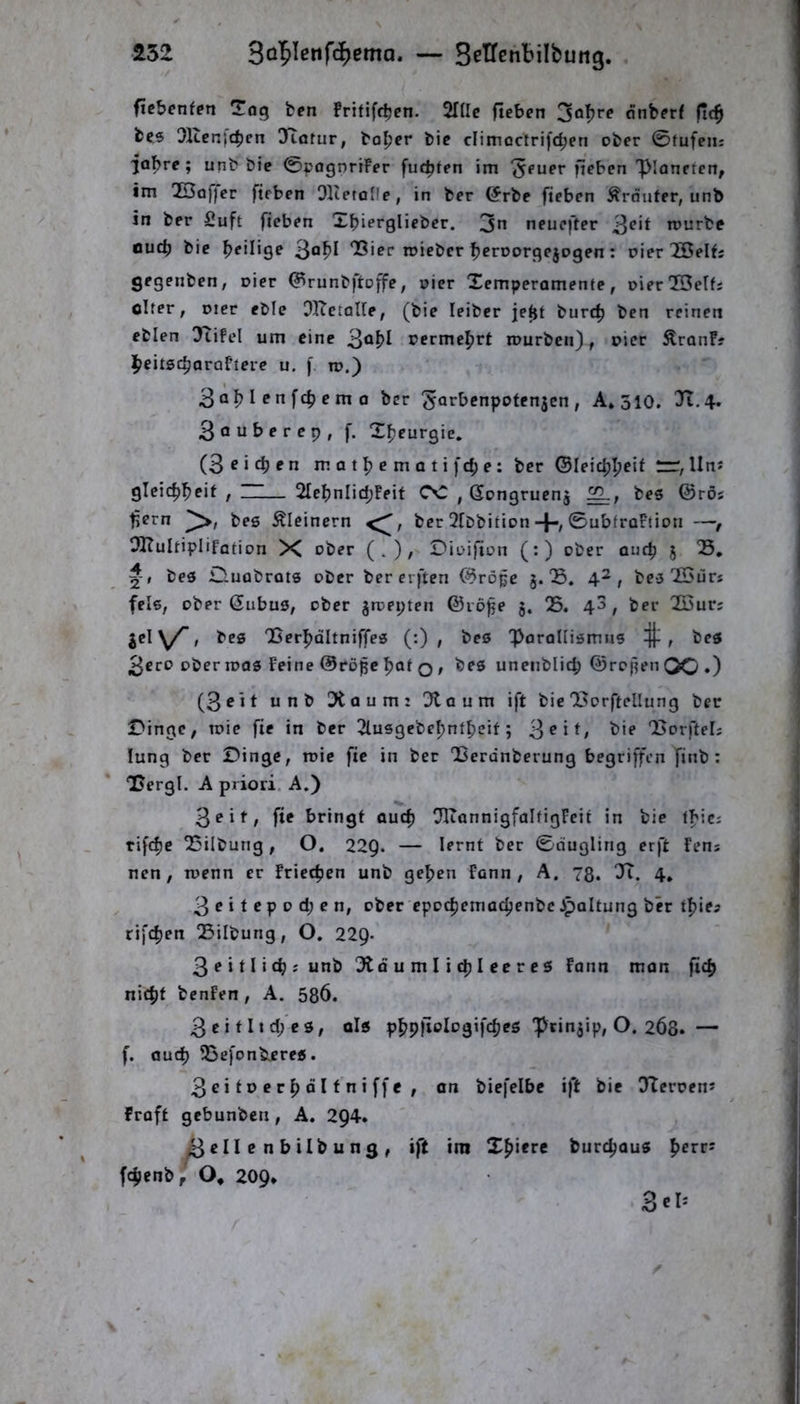 232 Zahlenschema. — Zellenbildung.
siebenten Tag den kritischen. Alle sieben Jahre ändert sich
des Menschen Natur, daher die climactrischen oder Stufen-
jahre; und die Spagyriker suchten im Feuer sieben Planeten,
im Wasser sieben Metalle, in der Erde sieben Kräuter, und
in der Luft sieben Thierglieder. In neuester Zeit wurde
auch die heilige Zahl Vier wieder hervorgezogen: vier Welt-
gegenden, vier Grundstoffe, vier Temperamente, vier Welt-
alter, vier edle Metalle, (die leider jetzt durch den reinen
edlen Nikel um eine Zahl vermehrt wurden), vier Krank-
heitscharaktere u. s w.)
Zahlenschema der Farbenpotenzen, A. 310. N. 4.
Zauberey, s. Theurgie.
(Zeichen mathematische: der Gleichheit =, Un-
gleichheit , Aehnlichkeit ∾ , Congruenz ≌, des Grös-
ßern >, des Kleinern <, der Addition +, Subtraktion —,
Multiplikation × oder ( . ), Division (:) oder auch z B.
4/2, des Quadrats oder der ersten Größe z. B. 4², des Wür-
fels, oder Cubus, oder zweyten Größe z. B. 4³, der Wur-
zel √, des Verhältniffes (:) , des Parallismus ⋕ , des
Zero oder was keine Größe hat ○, des unendlich Großen ∞.)
(Zeit und Raum: Raum ist die Vorstellung der
Dinge, wie sie in der Ausgedehntheit; Zeit, die Vorstel-
lung der Dinge, wie sie in der Veränderung begriffen sind:
Vergl. A priori A.)
Zeit, sie bringt auch Mannigfaltigkeit in die thie-
rische Bildung, O. 229. — lernt der Säugling erst ken-
nen, wenn er kriechen und gehen kann, A. 78. N. 4.
Zeitepochen, oder epochemachende Haltung der thie-
rischen Bildung, O. 229.
Zeitlich- und Räumlichleeres kann man sich
nicht denken, A. 586.
Zeitliches, als physiologisches Prinzip, O. 263. —
s. auch Besonderes.
Zeitverhältnisse, an dieselbe ist die Nerven-
kraft gebunden, A. 294.
Zellenbildung, ist im Thiere durchaus herr-
schend, O. 209.
Zel-